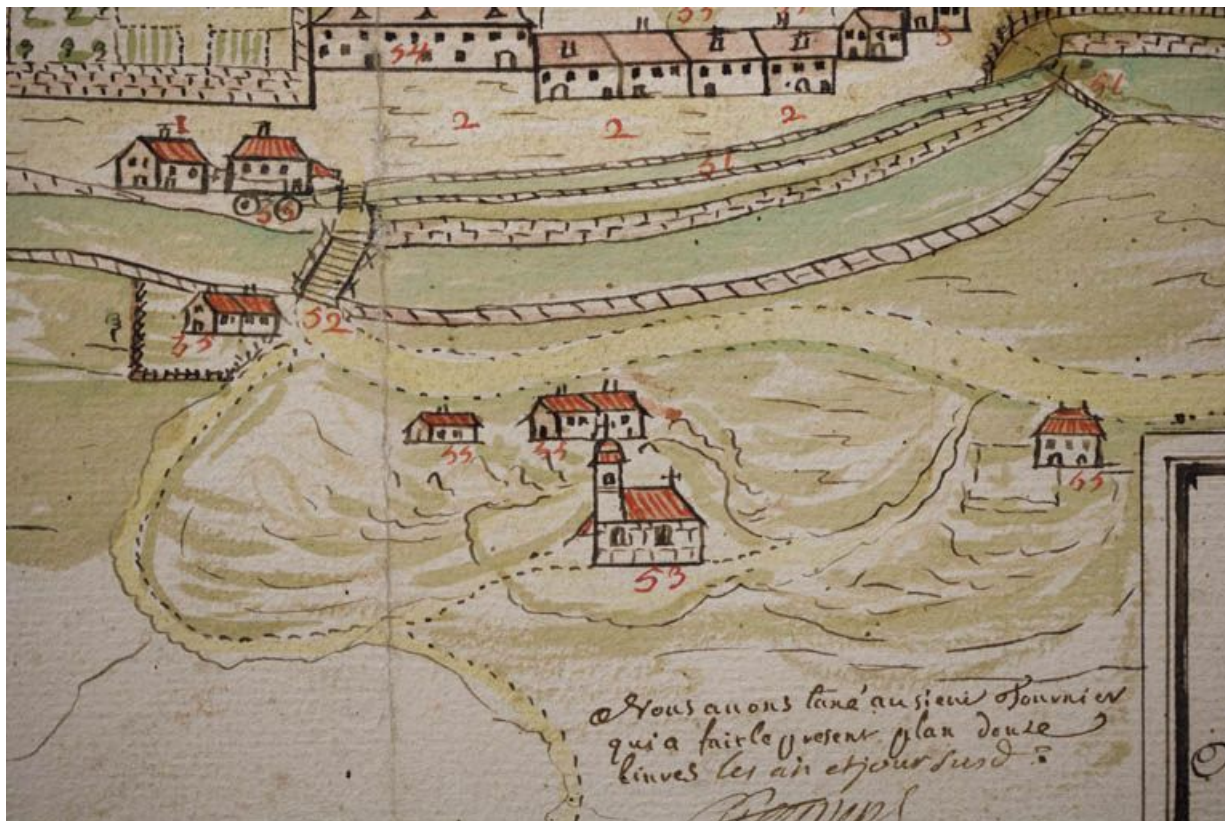 55
54
5
51
2 2 2
1
51
55
52
55
55 55
55
53
Nous auons taxé au sieur Fournier
qui a fait le present plan douze
liures les an et jour susd